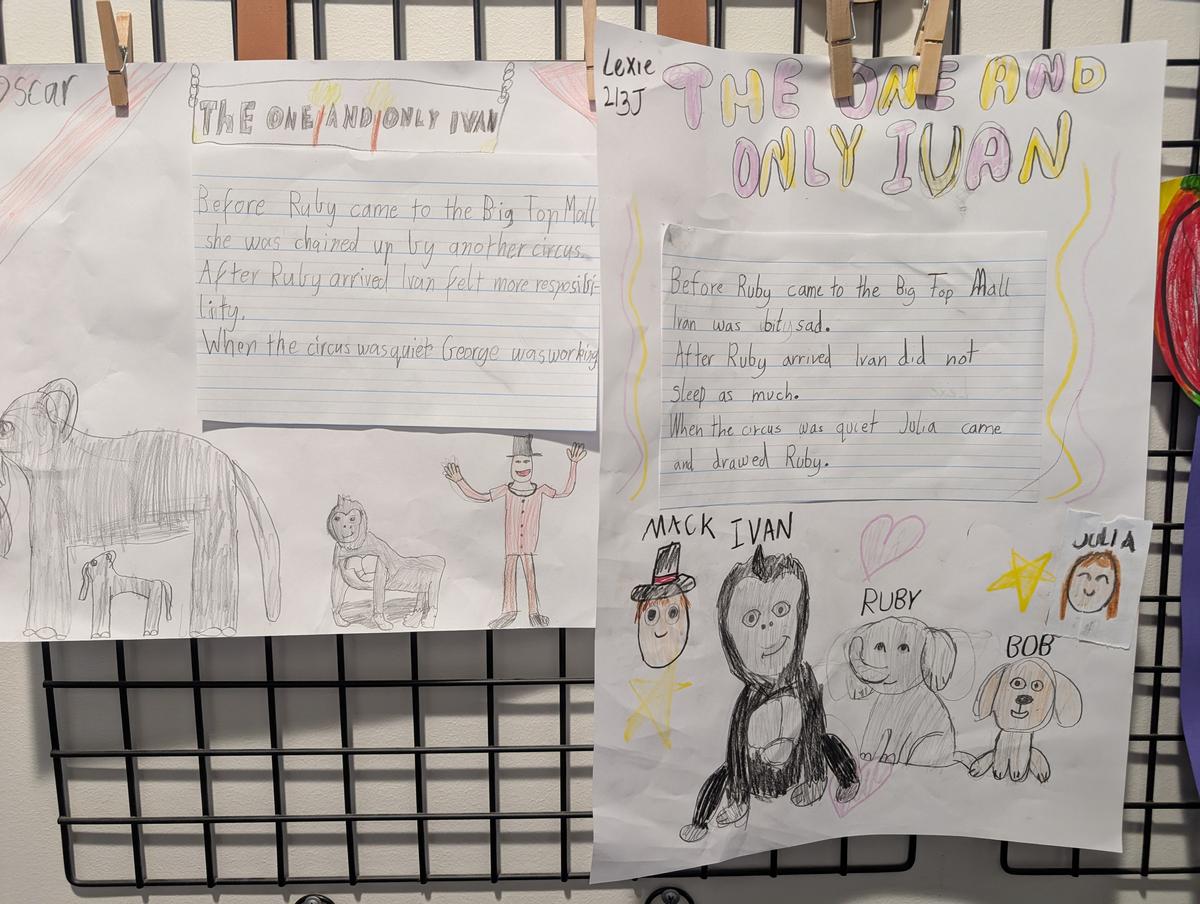 Oscar
THE ONE AND ONLY IVAN
Before Ruby came to the Big Top Mall
she was chained up by another circus.
After Ruby arrived Ivan felt more resposibi-
lity.
When the circus was quiet George was working
Lexie
2/3J
THE ONE AND
ONLY IVAN
Before Ruby came to the Big Top Mall
Ivan was bity sad.
After Ruby arrived Ivan did not
sleep as much.
When the circus was quiet Julia came
and drawed Ruby.
MACK IVAN
JULIA
RUBY
BOB